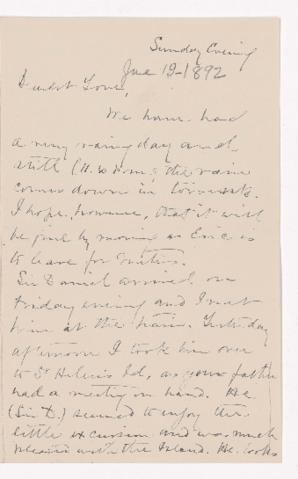 Sunday Evening
June 19-1892
Dearest Love,
We have had
a very rainy day and
still (11.30 P.m.) the rain
comes down in torrents.
I hope, however, that it will
be fine by morning as Eric is
to leave for
Sir Daniel arrived on
Friday evening and I met
him at the train. Yesterday
afternoon I took him over
to St Helen's Id, as your father
had a meeting on hand. He
(Sir D.) seemed to enjoy the
little excursion and was much
pleased with the Island. He looks